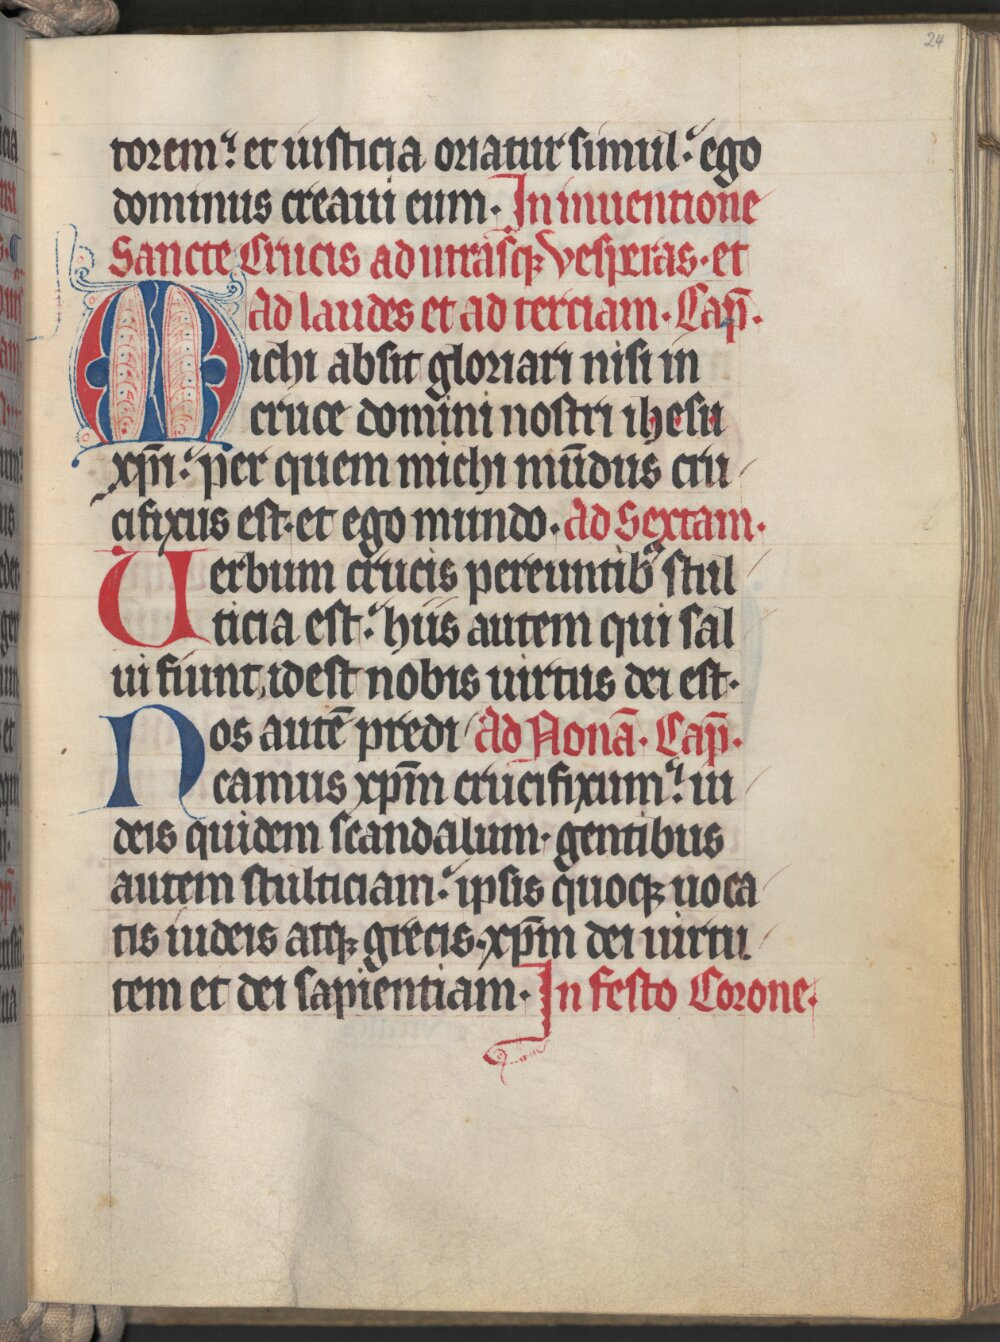 24
torem: et iusticia oriatur simul: ego
dominus creaui eum. In inuentione
Sancte Crucis ad utrasqꝫ vesperas. et
Ad laudes et ad terciam. Cap̄.
Michi absit gloriari nisi in
cruce domini nostri ihesu
xp̄i: per quem michi mūdus cru
cifixus est. et ego mundo. Ad Sextam.
Uerbum crucis pereuntibꝰ stul
ticia est: hiis autem qui sal
ui fiunt, idest nobis uirtus dei est.
Nos autē predi Ad Nonā. Cap̄.
camus xp̄m crucifixum: iu
deis quidem scandalum. gentibus
autem stulticiam: ipsis quoqꝫ uoca
tis iudeis atqꝫ grecis. xp̄m dei uirtu
tem et dei sapientiam. In festo Corone.